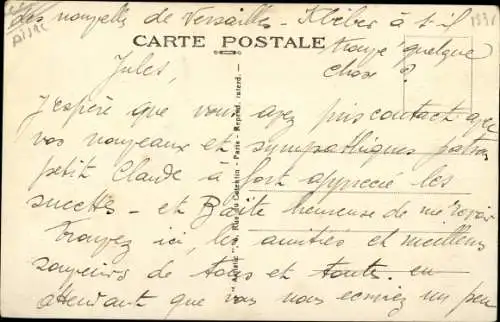 des nouvelles de Versailles - Kléber a-t-il
CARTE POSTALE
trouvé quelque
chose ?
Jules,
J'espère que vous avez pris contact avec
vos nouveaux et sympathiques patrons
petit Claude a fort apprécié les
sucettes - et heureuse de me revoir
Trouvez ici, les amitiés et meilleurs
souvenirs de tous et toutes - en
attendant que vous nous écriviez un peu
Rue du Cotentin - Paris - Reprod. interd.